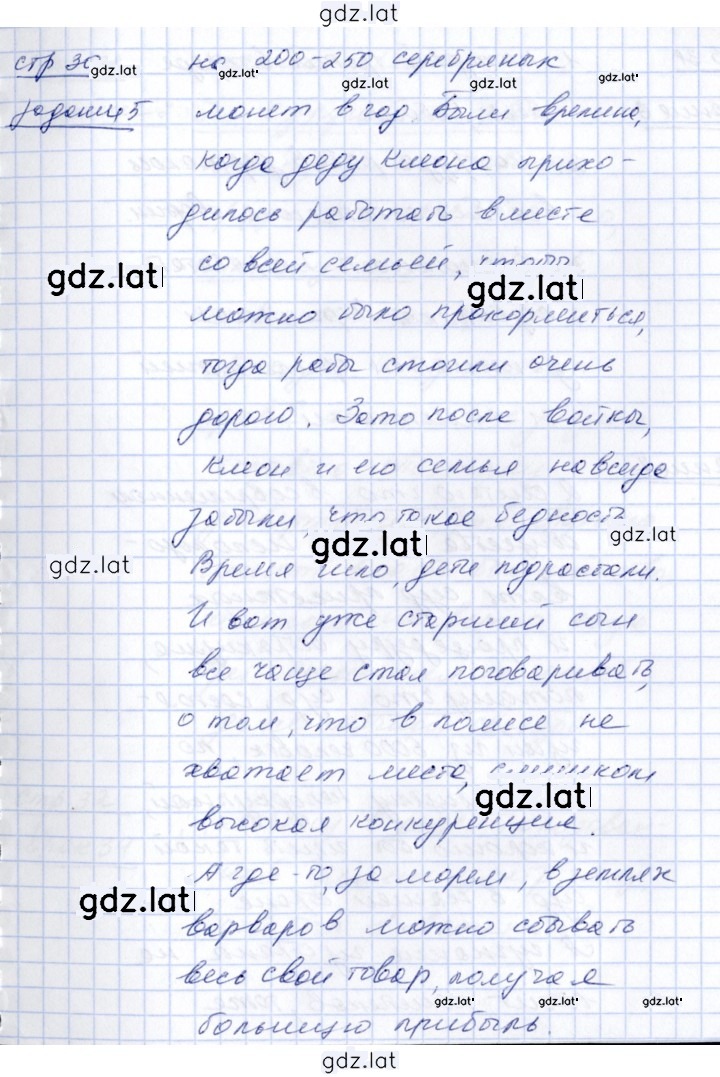 gdz.lat
стр 30 на 200-250 серебряных
gdz.lat gdz.lat gdz.lat gdz.lat gdz.lat
задание 5 монет в год. Были времена,
когда деду Клеона прихо-
дилось работать вместе
со всей семьей, чтобы
gdz.lat gdz.lat
можно было прокормиться,
тогда рабы стоили очень
дорого. Зато после войны,
Клеон и его семья навсегда
забыли, что такое бедность.
gdz.lat gdz.lat gdz.lat
Время шло, дети подрастали.
И вот уже старший сын
все чаще стал поговаривать,
о том, что в полисе не
хватает места, слишком
gdz.lat
высокая конкуренция.
А где-то, за морем, в землях
gdz.lat
варваров можно сбывать
весь свой товар, получая
gdz.lat gdz.lat gdz.lat
большую прибыль.
gdz.lat